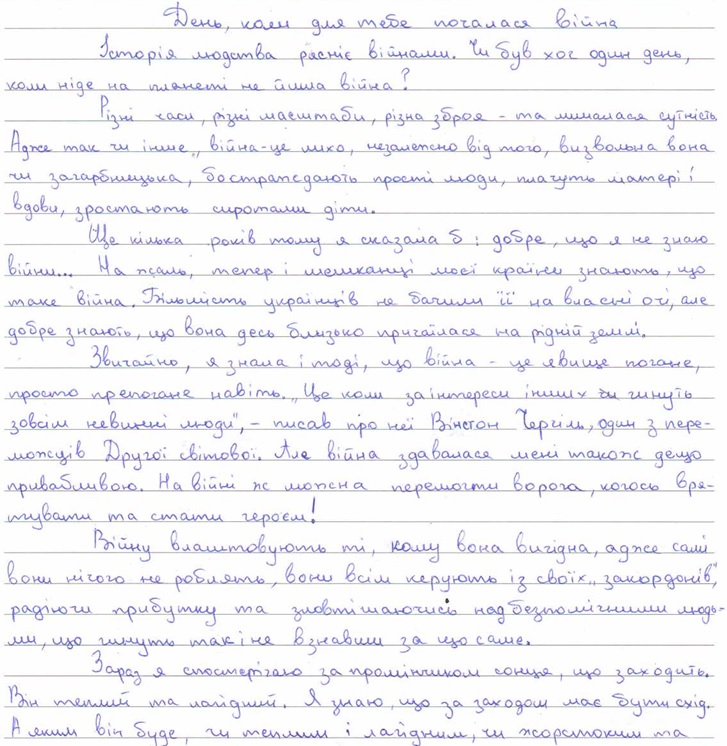 День, коли для тебе почалася війна
Історія людства рясніє війнами. Чи був хос один день,
коли ніде на планеті не йшла війна?
Різні часи, різні масштаби, різна зброя – та миналася сутність.
Адже так чи інше, війна – це лихо, незалежно від того, визвольна вона
чи загарбницька, бо страждають прості люди, плачуть матері і
вдови, зростають сиротами діти.
Ще кілька років тому я сказала б: добре, що я не знаю
війни... На жаль, тепер і мешканці моєї країни знають, що
таке війна. Більшість українців не бачили її на власні очі, але
добре знають, що вона десь близько причаїлася на рідній землі.
Звичайно, я знала і тоді, що війна – це явище погане,
просто препогане навіть. „Це коли за інтереси інших гинуть
зовсім невинні люди", – писав про неї Вінстон Черчіль, один з пере-
можців Другої світової. Але війна здавалася мені також дещо
привабливою. На війні ж можна перемогти ворога, когось вря-
тувати та стати героєм!
Війну влаштовують ті, кому вона вигідна, адже самі
вони нічого не роблять, вони всім керують із своїх „закордонів",
радіючи прибутку та зловтішаючись над безпомічними людь-
ми, що гинуть так і не взнавши за що саме.
Зараз я спостерігаю за промінчиком сонця, що заходить.
Він теплий та лагідний. Я знаю, що за заходом має бути схід.
А яким він буде, чи теплим і лагідним, чи жорстоким та